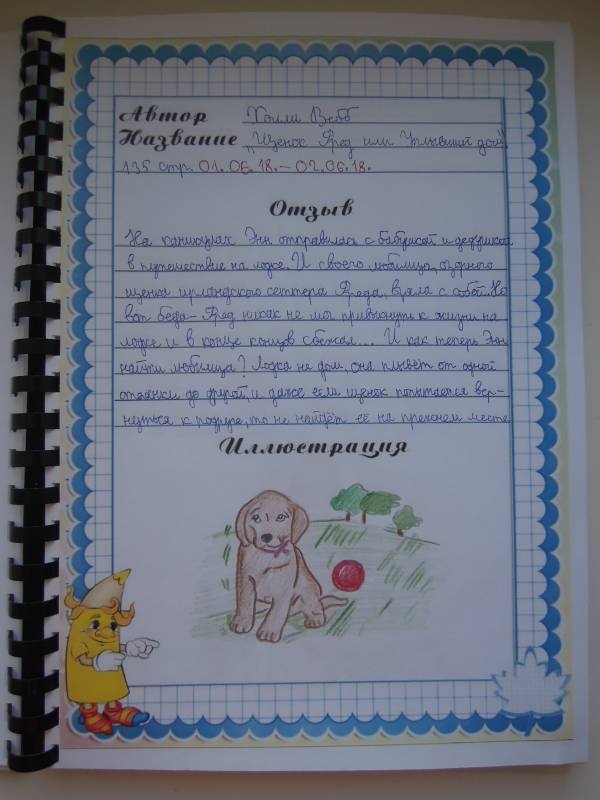 Автор Холли Вебб
Название „Щенок Фред или Уплывший дом"
135 стр. 01.06.18. – 02.06.18.
Отзыв
На каникулах Энн отправилась с бабушкой и дедушкой
в путешествие на лодке. И своего любимца, озорного
щенка ирландского сеттера Фреда, взяла с собой. Но
вот беда – Фред никак не мог привыкнуть к жизни на
лодке и в конце концов сбежал... И как теперь Энн
найти любимца? Лодка не дом, она плывёт от одной
стоянки до другой, и даже если щенок попытается вер-
нуться к подруге, то не найдёт её на прежнем месте.
Иллюстрация